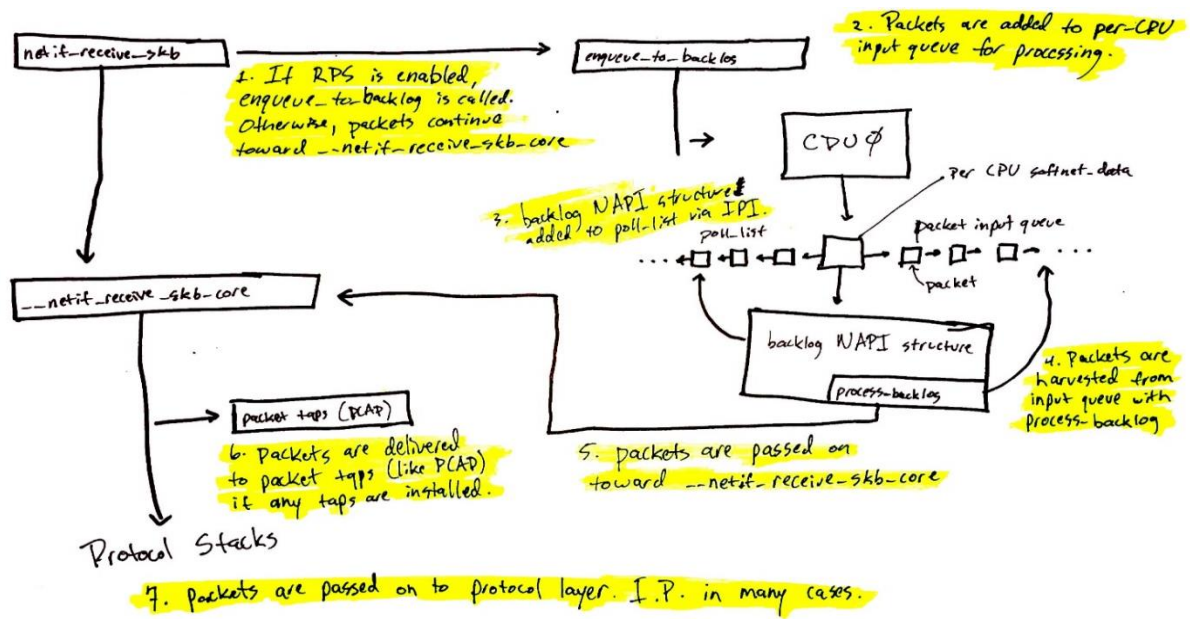 netif_receive_skb
1. If RPS is enabled,
enqueue_to_backlog is called.
Otherwise, packets continue
toward __netif_receive_skb_core
enqueue_to_backlog
2. Packets are added to per-CPU
input queue for processing.
CPU 0
Per CPU softnet_data
3. backlog NAPI structure
added to poll_list via IPI.
poll_list
packet input queue
packet
__netif_receive_skb_core
backlog NAPI structure
process_backlog
4. Packets are
harvested from
input queue with
process_backlog
packet taps (PCAP)
5. packets are passed on
toward __netif_receive_skb_core
6. Packets are delivered
to packet taps (like PCAP)
if any taps are installed.
Protocol Stacks
7. packets are passed on to protocol layer. I.P. in many cases.